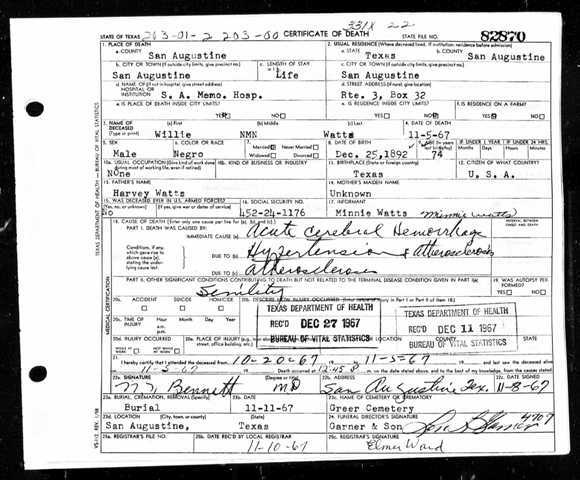 331X 22
STATE OF TEXAS 203-01-2 203-00 CERTIFICATE OF DEATH STATE FILE NO. 82870
1. PLACE OF DEATH 2. USUAL RESIDENCE (Where deceased lived. If institution: residence before admission)
a. COUNTY San Augustine a. STATE Texas b. COUNTY San Augustine
b. CITY OR TOWN (If outside city limits, give precinct no.) c. LENGTH OF STAY c. CITY OR TOWN (If outside city limits, give precinct no.)
San Augustine Life San Augustine
d. NAME OF (If not in hospital, give street address) HOSPITAL OR INSTITUTION d. STREET ADDRESS (If rural, give location)
S. A. Memo. Hosp. Rte. 3, Box 32
e. IS PLACE OF DEATH INSIDE CITY LIMITS? e. IS RESIDENCE INSIDE CITY LIMITS? f. IS RESIDENCE ON A FARM?
YES NO YES NO YES NO
3. NAME OF DECEASED (a) First (b) Middle (c) Last 4. DATE OF DEATH
Willie NMN Watts 11-5-67
5. SEX 6. COLOR OR RACE 7. Married Never Married Widowed Divorced 8. DATE OF BIRTH IF UNDER 1 YEAR IF UNDER 24 HRS.
Male Negro Dec. 25,1892 74
10a. USUAL OCCUPATION 10b. KIND OF BUSINESS OR INDUSTRY 11. BIRTHPLACE (State or foreign country) 12. CITIZEN OF WHAT COUNTRY?
None Texas U. S. A.
13. FATHER'S NAME 14. MOTHER'S MAIDEN NAME
Harvey Watts Unknown
15. WAS DECEASED EVER IN U.S. ARMED FORCES? 16. SOCIAL SECURITY NO. 17. INFORMANT
No 452-24-1176 Minnie Watts Minnie Watts
18. CAUSE OF DEATH INTERVAL BETWEEN ONSET AND DEATH
PART I. DEATH WAS CAUSED BY:
IMMEDIATE CAUSE (a) Acute Cerebral Hemorrhage
Conditions, if any, which gave rise to above cause (a), stating the underlying cause last. DUE TO (b) Hypertension & Atherosclerosis
DUE TO (c) Atherosclerosis
PART II. OTHER SIGNIFICANT CONDITIONS CONTRIBUTING TO DEATH BUT NOT RELATED TO THE TERMINAL DISEASE CONDITION GIVEN IN PART I(a) 19. WAS AUTOPSY PERFORMED?
Senility YES NO
20a. ACCIDENT SUICIDE HOMICIDE 20b. DESCRIBE HOW INJURY OCCURRED. (Enter nature of injury in Part I or Part II of item 18.)
20c. TIME OF INJURY Hour Month Day Year a.m. p.m.
TEXAS DEPARTMENT OF HEALTH
REC'D DEC 27 1967
BUREAU OF VITAL STATISTICS
TEXAS DEPARTMENT OF HEALTH
REC'D DEC 11 1967
BUREAU OF VITAL STATISTICS
20d. INJURY OCCURRED WHILE AT WORK NOT WHILE AT WORK 20e. PLACE OF INJURY
21. I hereby certify that I attended the deceased from 10-20-67 to 11-5-67 and last saw the deceased alive
on 11-5-67 Death occurred at 12:45 on the date stated above, and to the best of my knowledge, from the causes stated.
22a. SIGNATURE (Degree or title) 22b. ADDRESS 22c. DATE SIGNED
Bennett MD San Augustine Tex. 11-8-67
23a. BURIAL, CREMATION, REMOVAL (Specify) 23b. DATE 23c. NAME OF CEMETERY OR CREMATORY
Burial 11-11-67 Greer Cemetery
23d. LOCATION (City, town, or county) (State) 24. FUNERAL DIRECTOR'S SIGNATURE
San Augustine, Texas Garner & Son 4707
25a. REGISTRAR'S FILE NO. 25b. DATE REC'D BY LOCAL REGISTRAR 25c. REGISTRAR'S SIGNATURE
11-10-67 Elmer Ward
TEXAS DEPARTMENT OF HEALTH — BUREAU OF VITAL STATISTICS
MEDICAL CERTIFICATION
VS-112 REV. 1/58